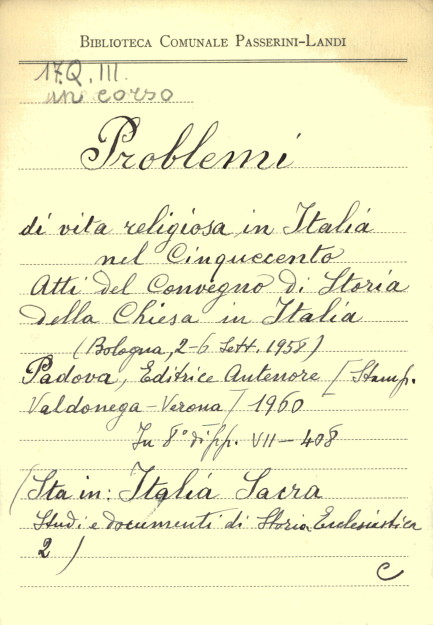 BIBLIOTECA COMUNALE PASSERINI-LANDI
17.Q.III.
in corso
Problemi
di vita religiosa in Italia
nel Cinquecento
Atti del Convegno di Storia
della Chiesa in Italia
(Bologna, 2-6 Sett. 1958)
Padova, Editrice Antenore [Stamp.
Valdonega-Verona] 1960
In 8° di pp. VII-408
(Sta in: Italia Sacra
Studi e documenti di Storia Ecclesiastica
2)
C